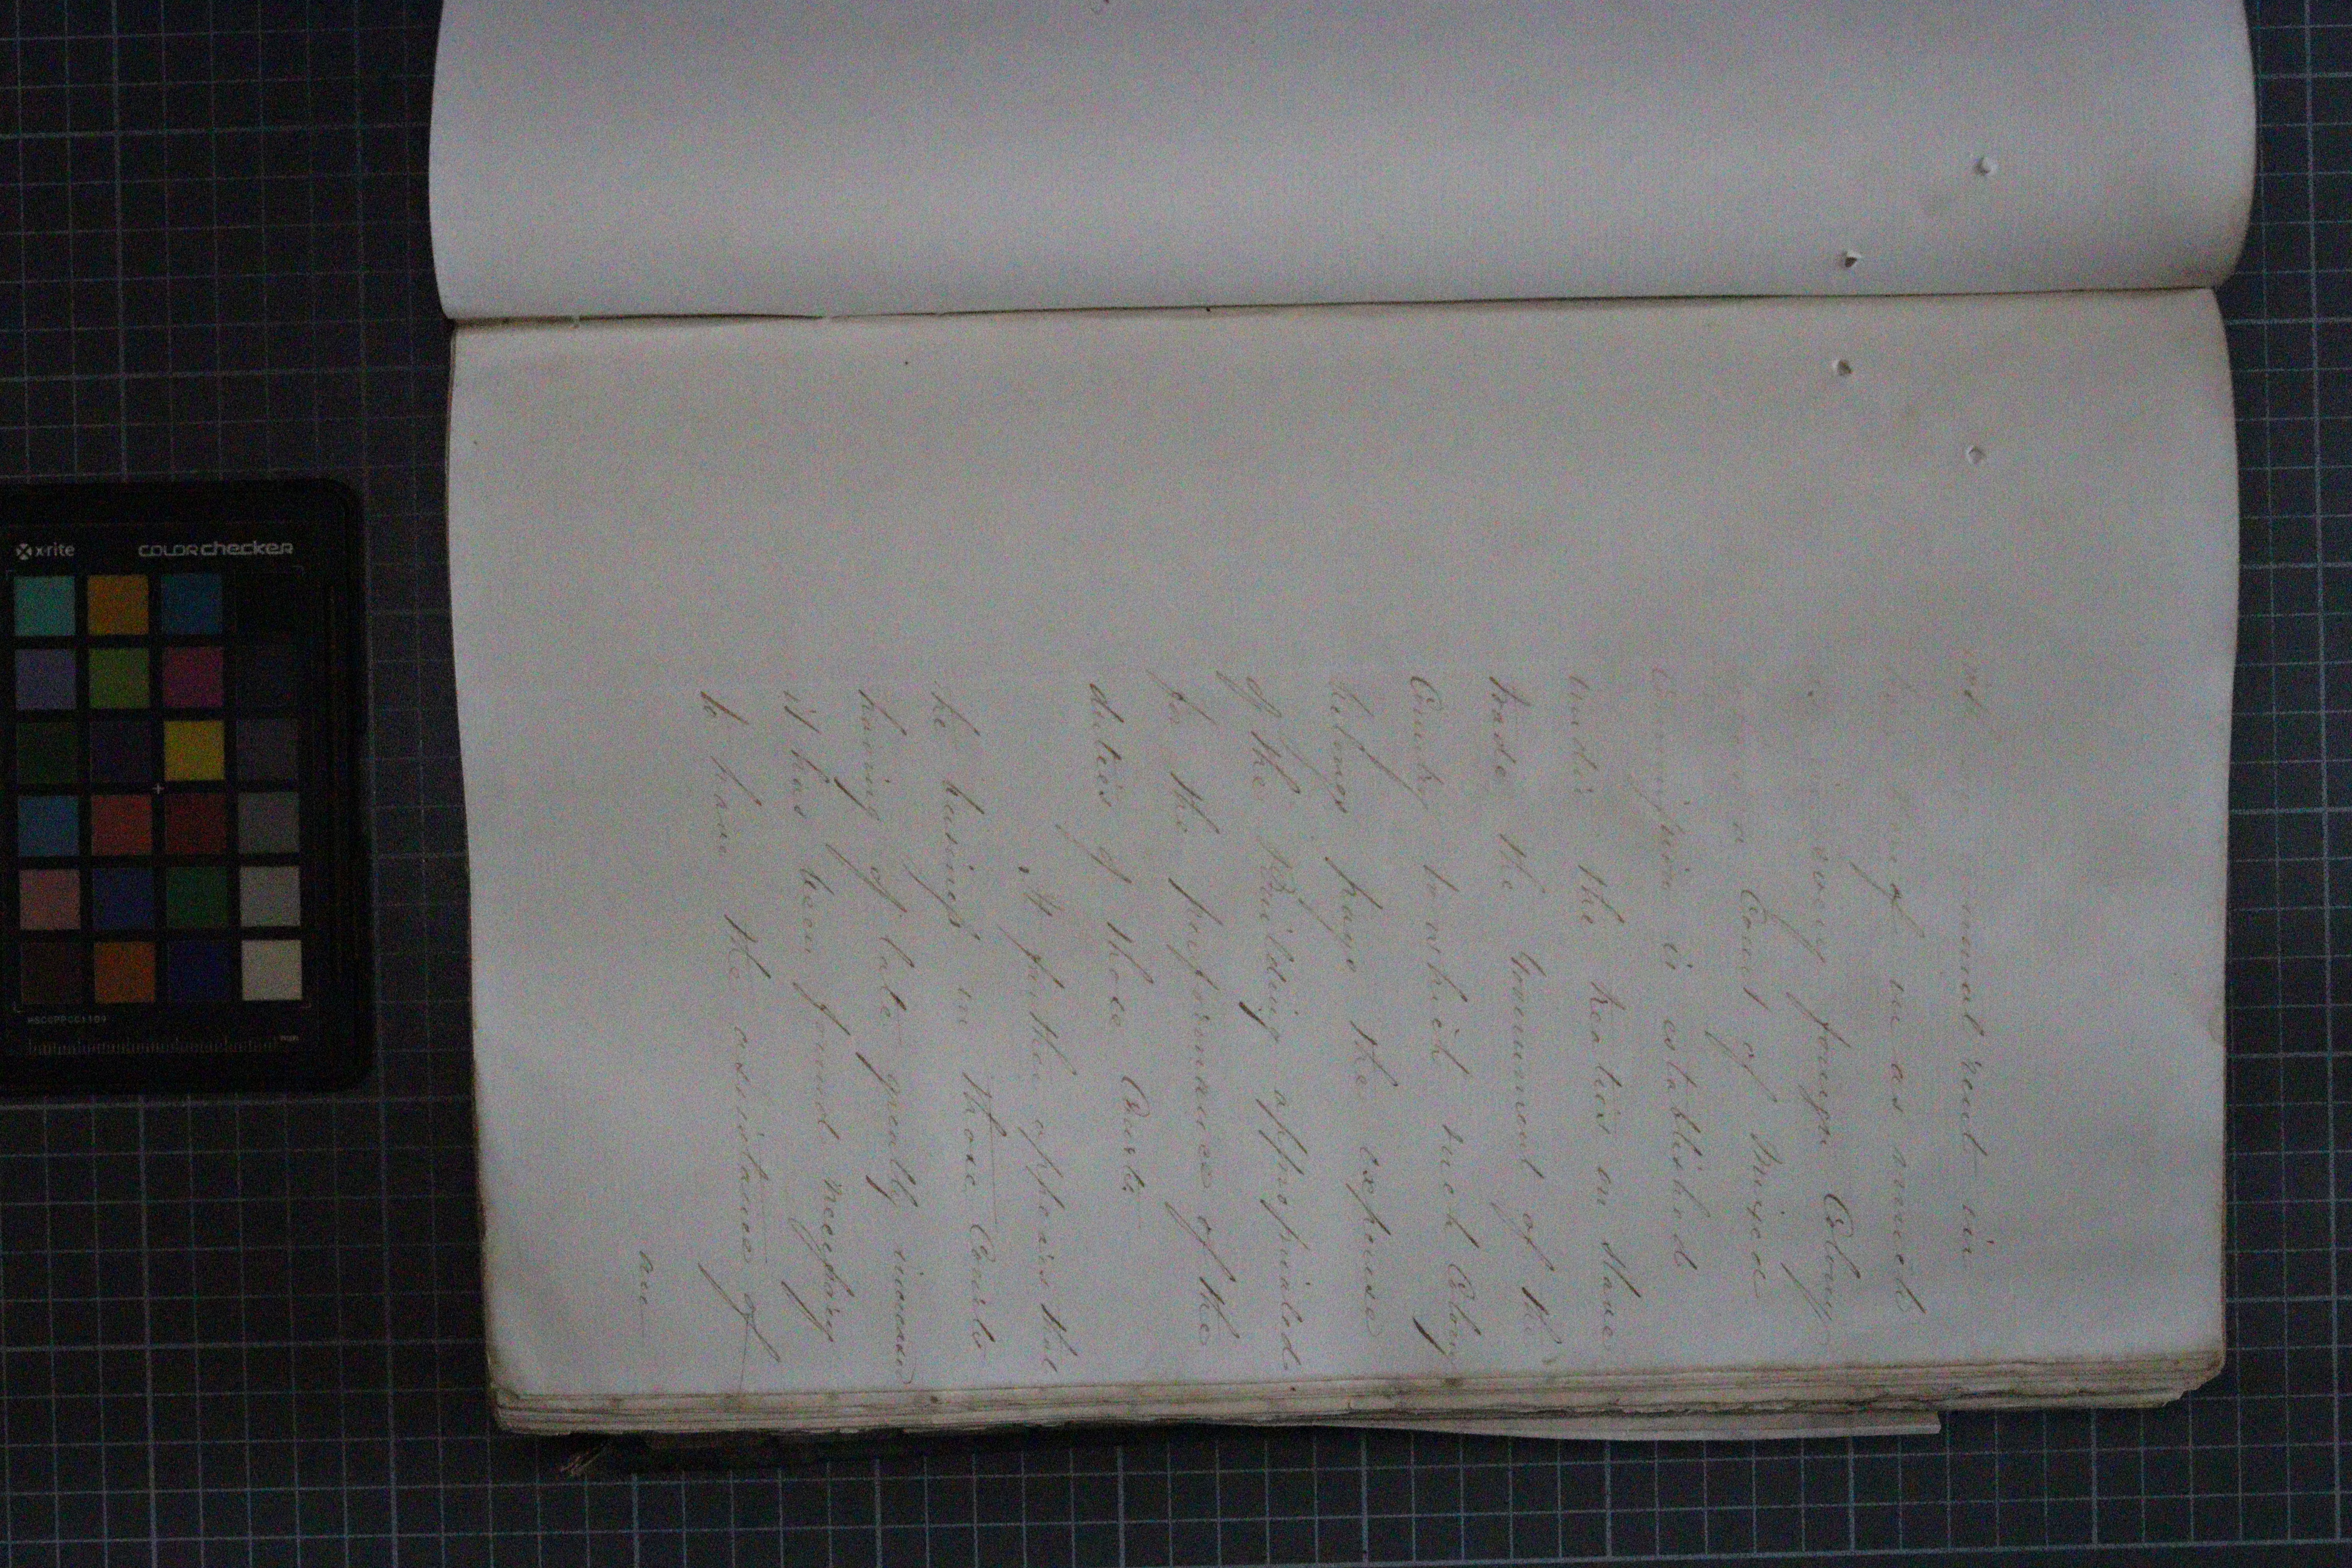 annual rent in
thereof in as much
in every foreign Colony
where a Court of Mixed
Commission is established
under the treaties on Slave
trade the Government of the
Country to which such Colony
belongs pays the expense
of the Building appropriated
for the performance of the
duties of those Courts
It further appears that
the business in those Courts
having of late greatly increased
it has been found necessary
to have the assistance of
x-rite
colorchecker
MSCCPPCC1109
mm